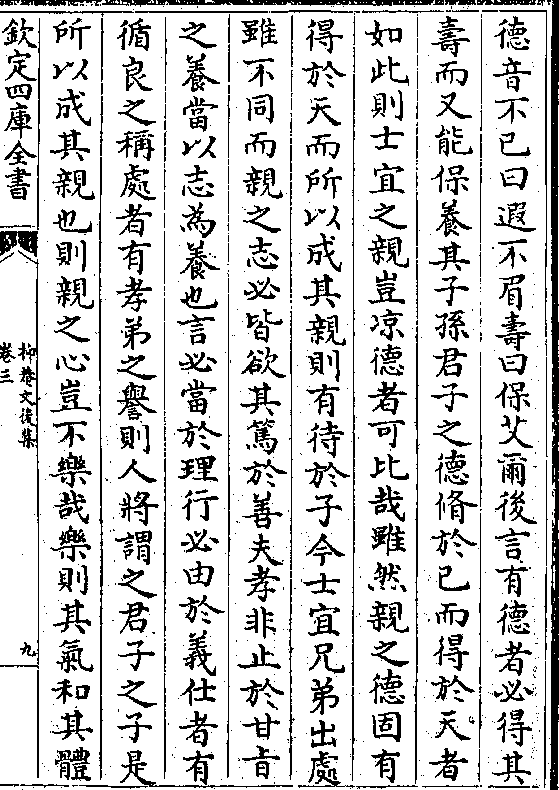 德音不已曰遐不眉壽曰保艾爾後言有德者必得其
壽而又能保養其子孫君子之德脩於已而得於天者
如此則士宜之親豈凉德者可比哉雖然親之德固有
得於天而所以成其親則有待於子今士宜兄弟出處
雖不同而親之志必皆欲其篤於善夫孝非止於甘旨
之養當以志為養也言必當於理行必由於義仕者有
循良之稱處者有孝弟之譽則人將謂之君子之子是
所以成其親也則親之心豈不樂哉樂則其氣和其體
欽定四庫全書
抑菴文後集
卷三
九